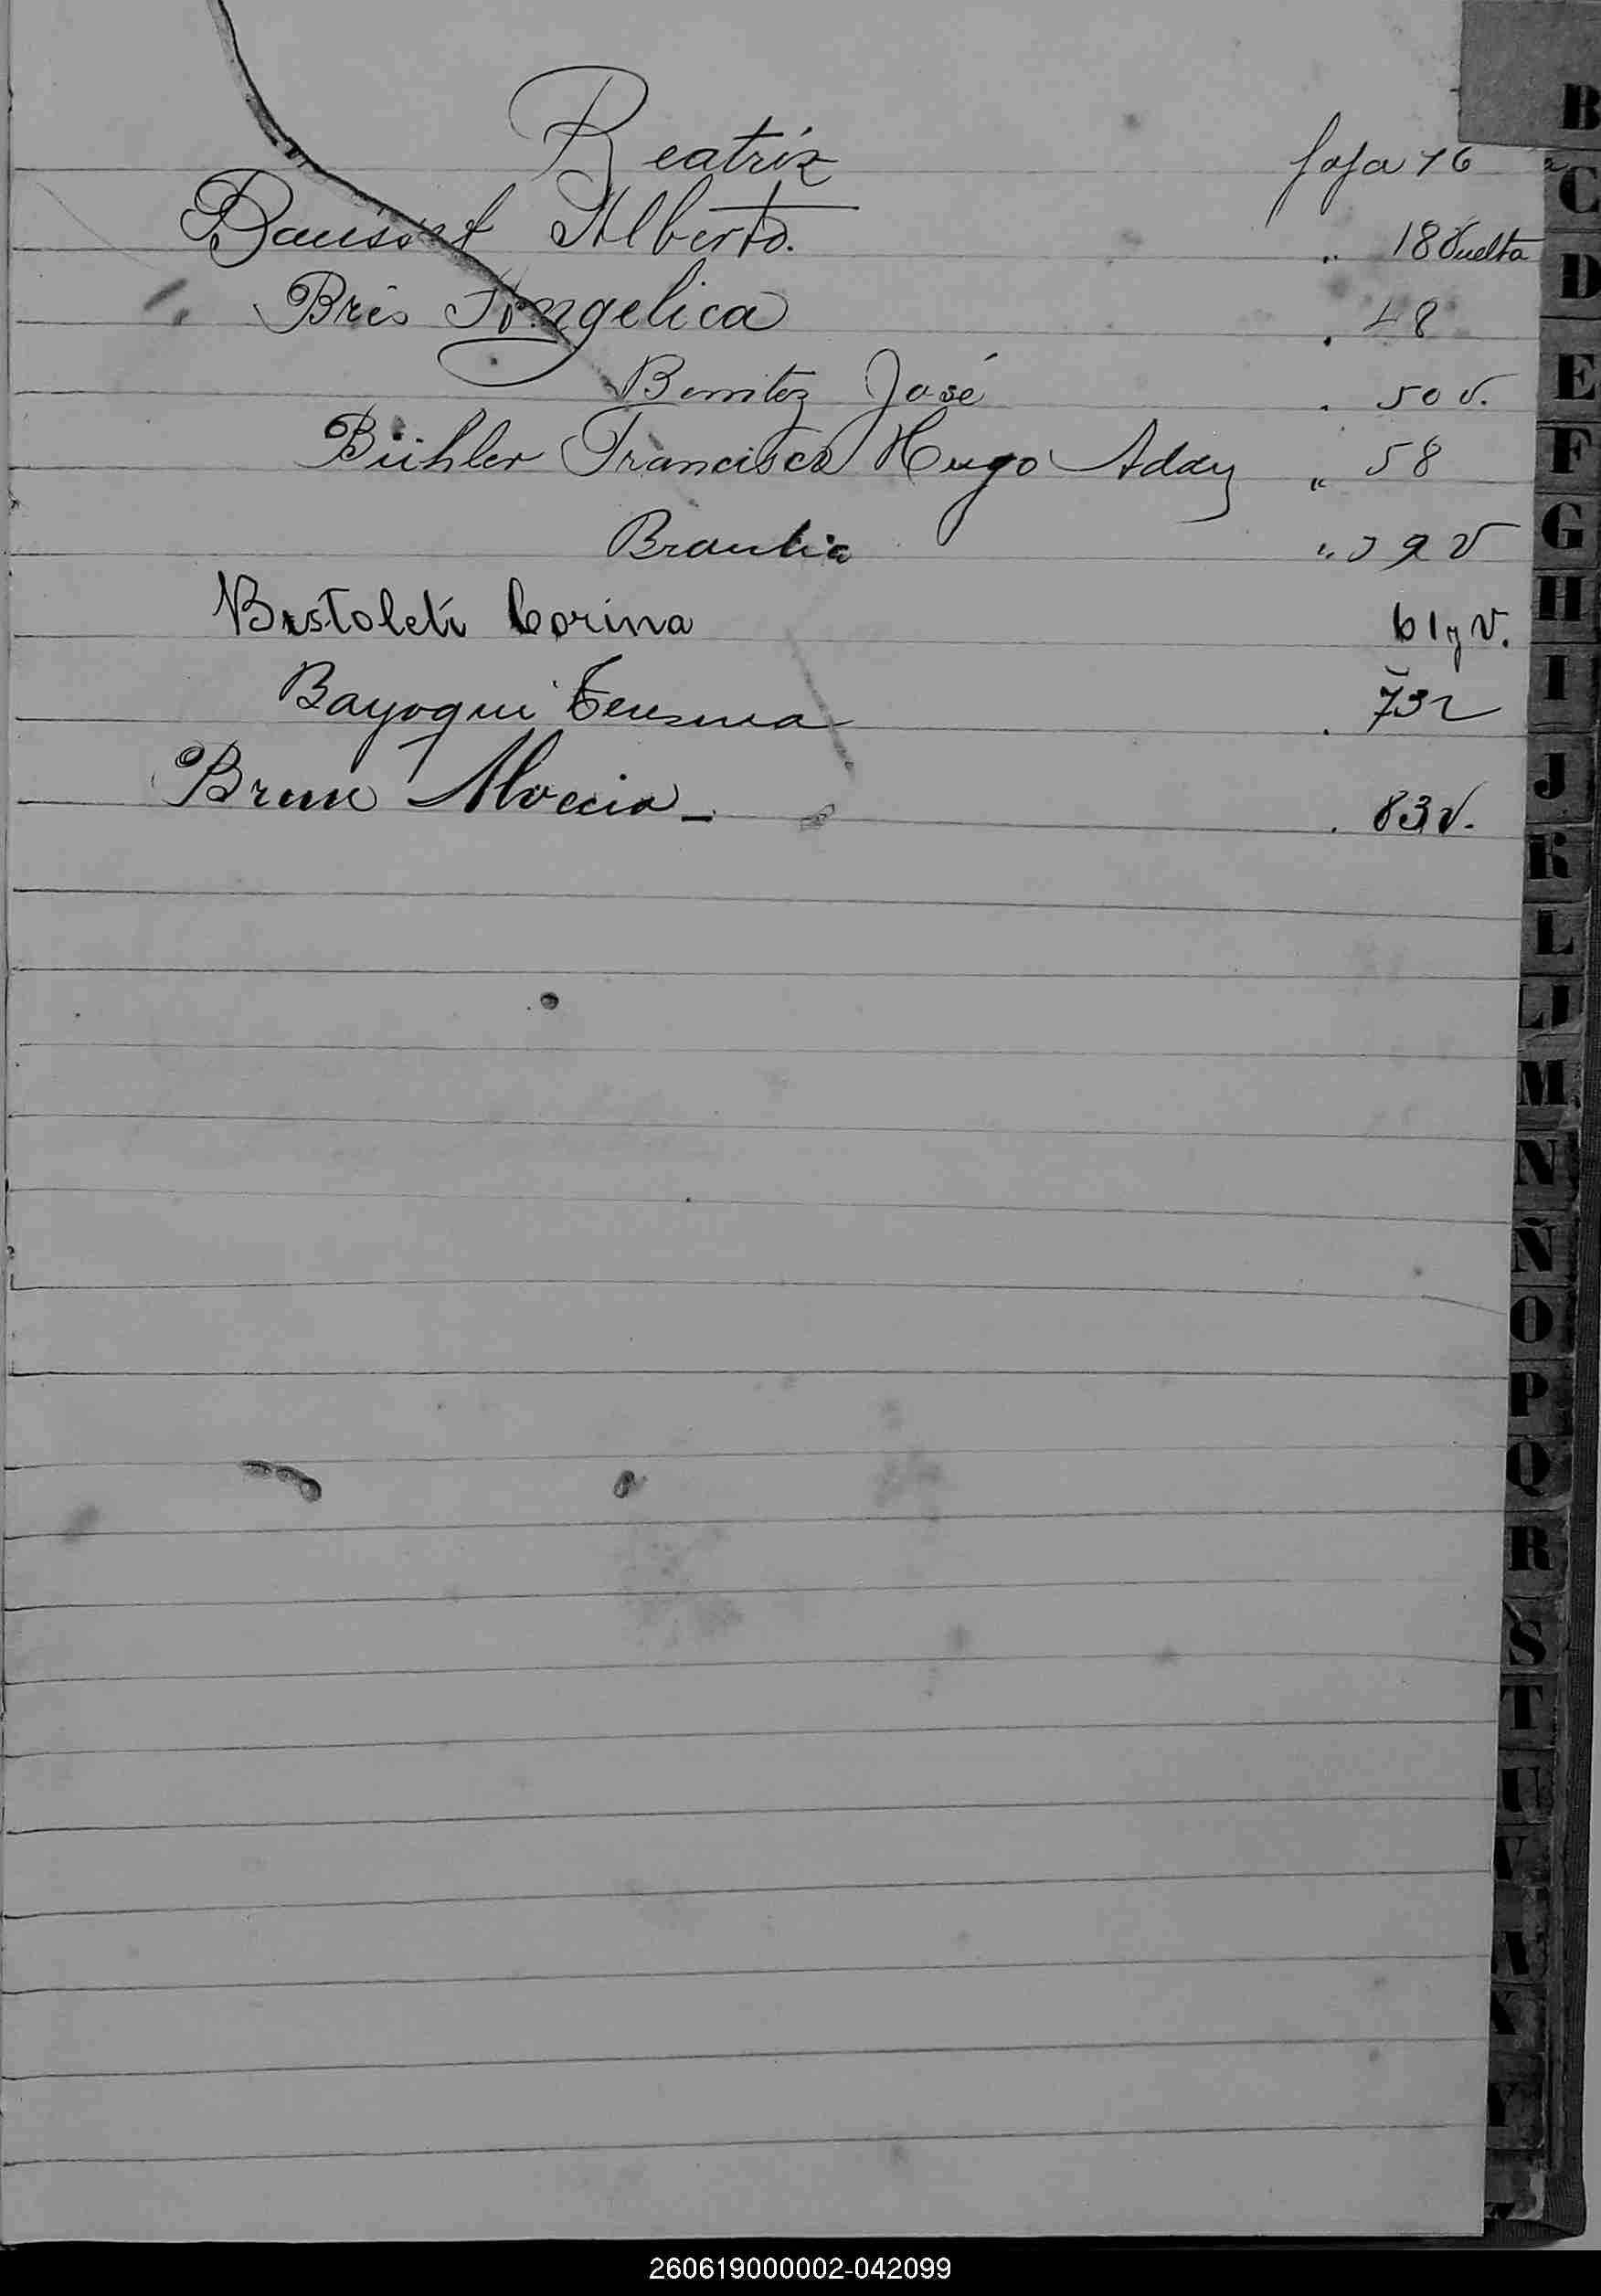 Beatriz foja 16
Bausset Alberto. " 18 Vuelta
Bris Angelica . 48
Benitez José . 50 v.
Bühler Francisca Hugo Addy " 58
Braulia " 59 V
Bistoleti Corina 61 y V.
Bayoqui Teresina . 73 v
Brun Alvecia . 83 v.
B
C
D
E
F
G
H
I
J
K
L
LL
M
N
Ñ
O
P
Q
R
S
T
U
V
X
Y
260619000002-042099